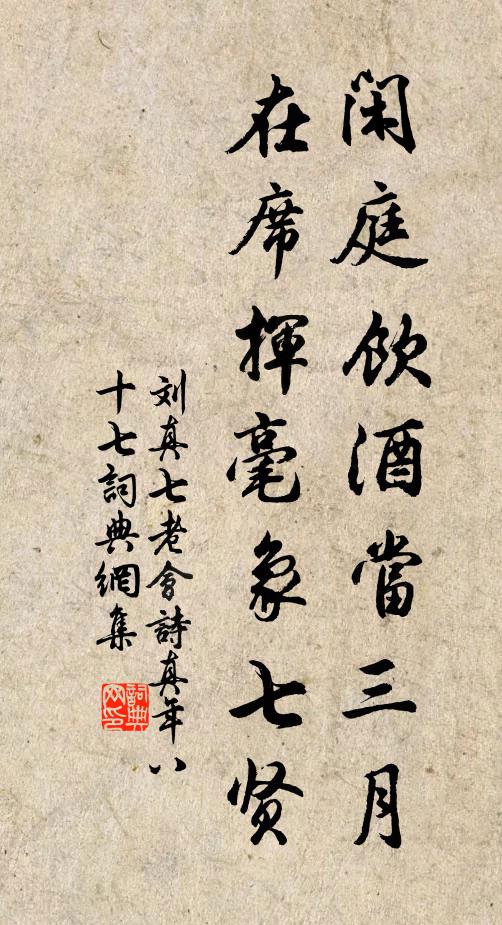 闲庭飲酒當三月
在席揮毫象七贤
刘真七老會詩真年八
十七詞典網集
詞典
网印